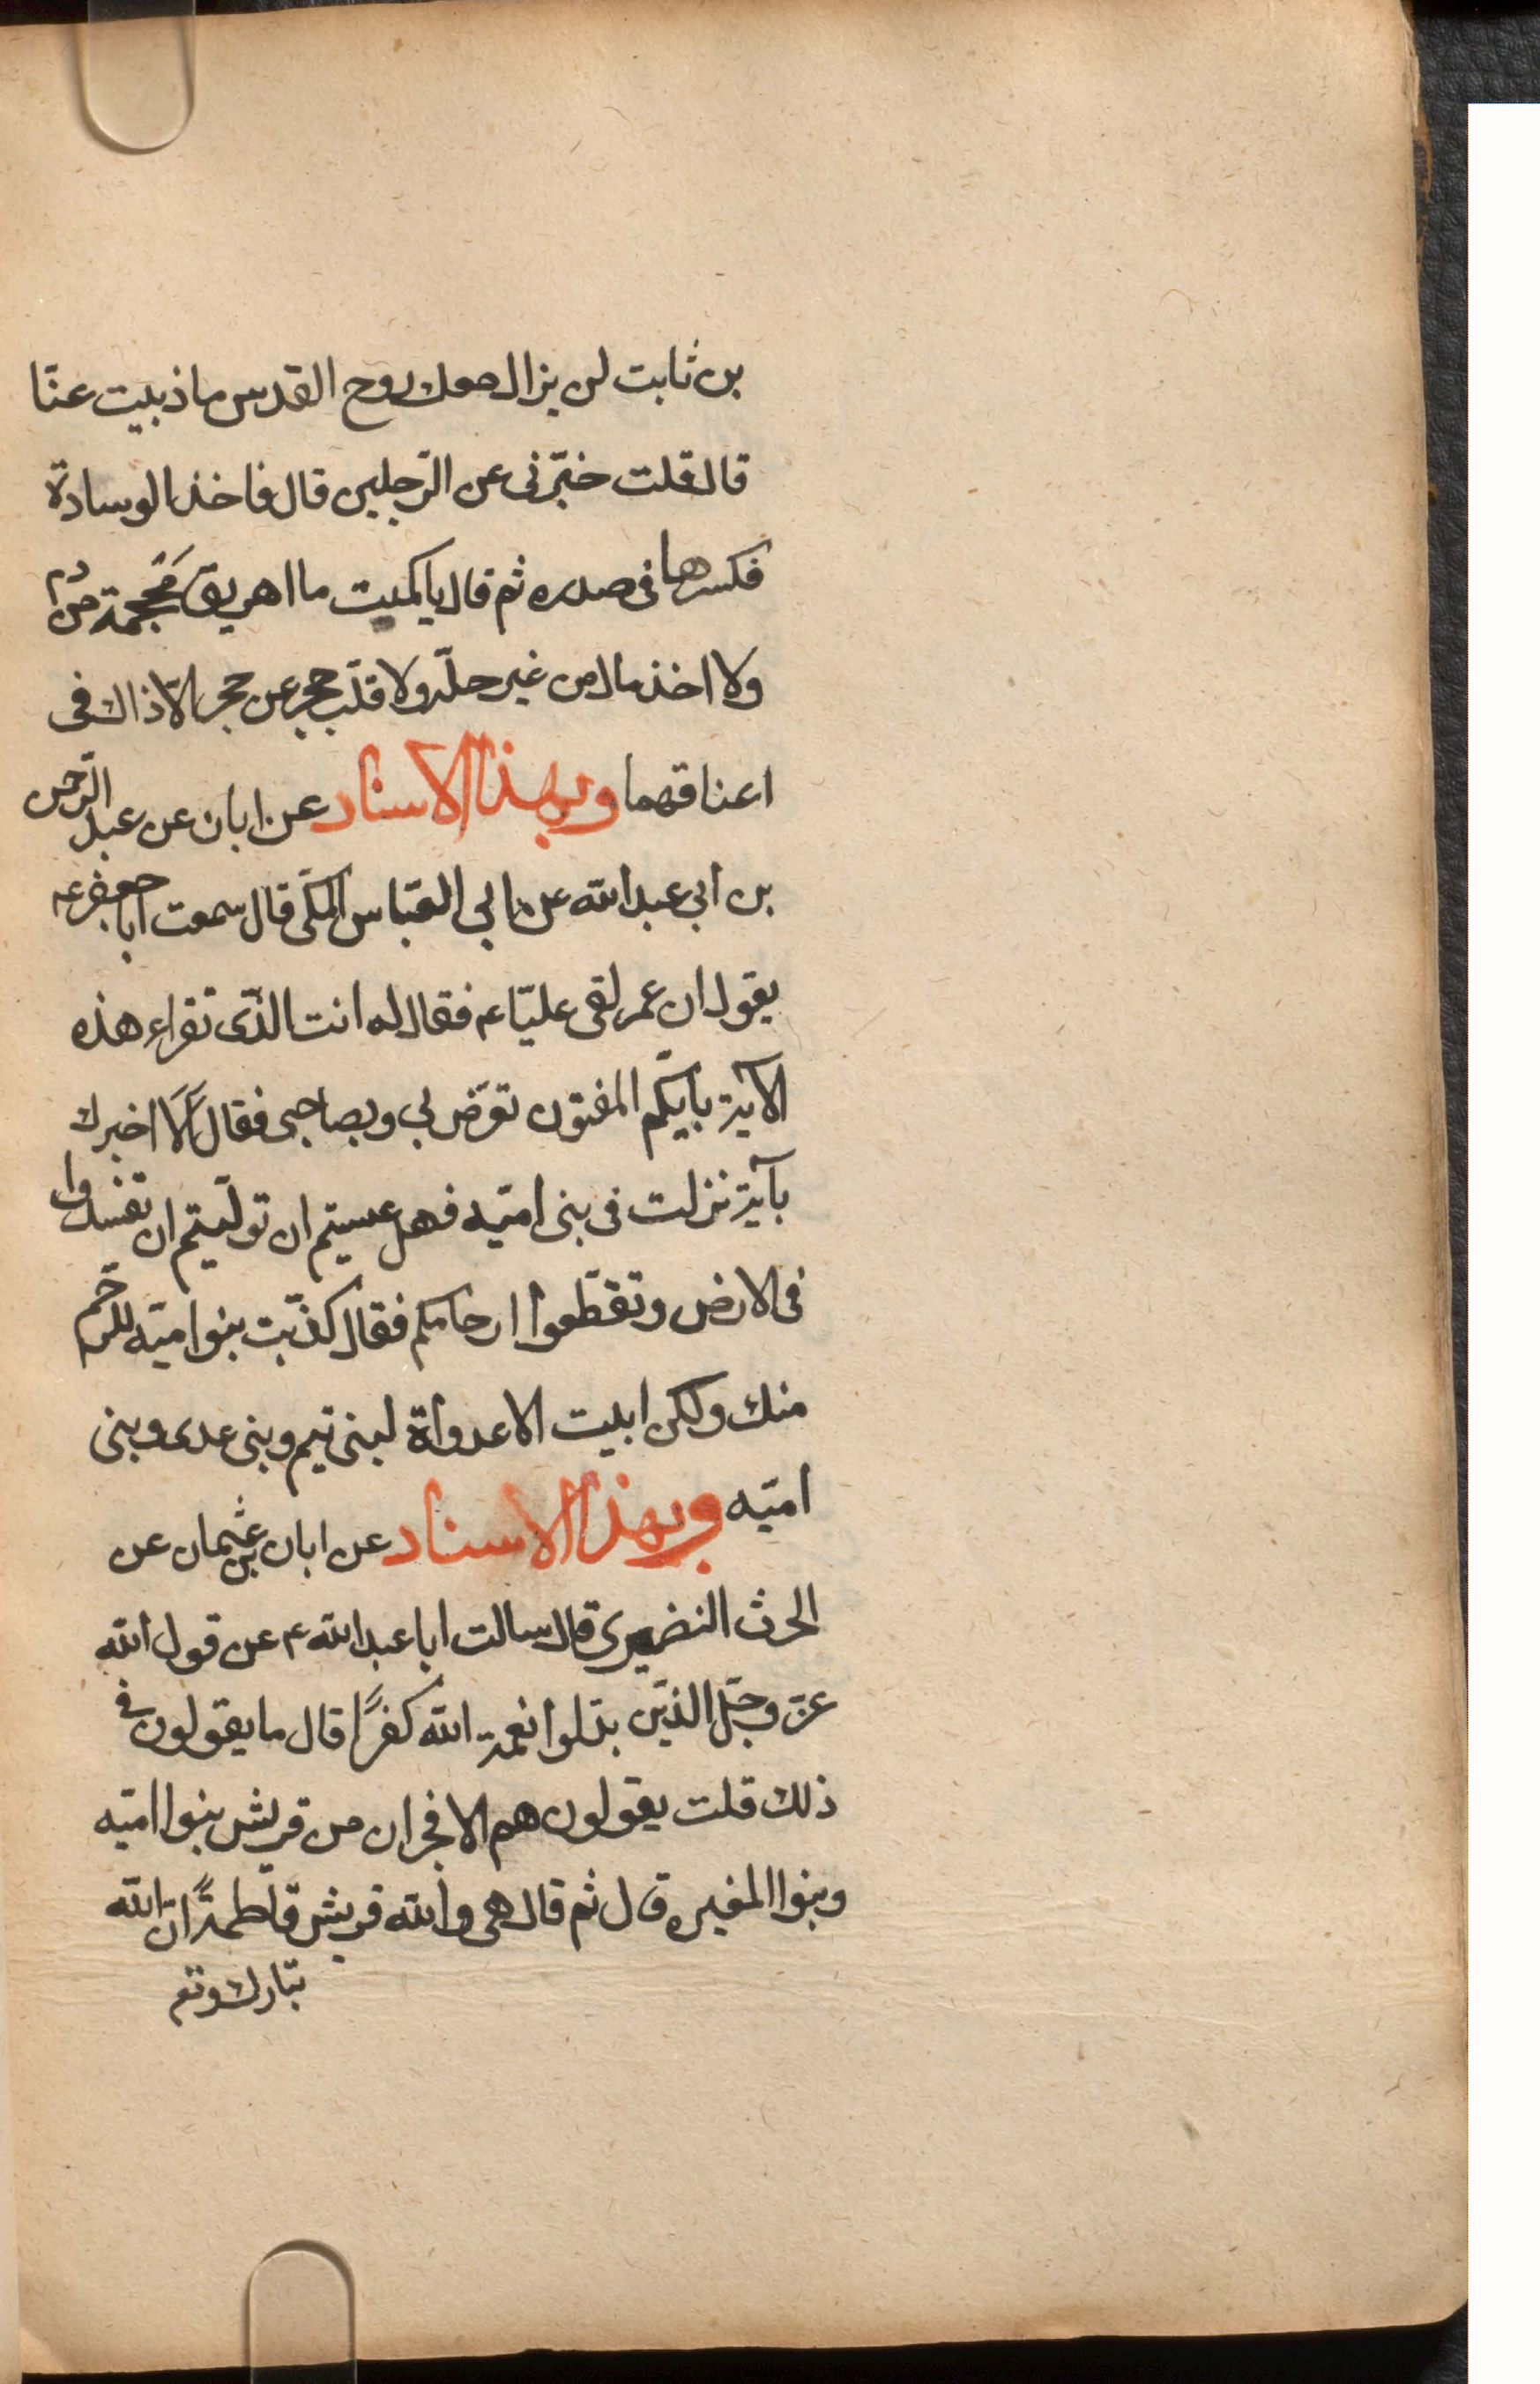 بن ثابت لن يزال معك روح القدس ما ذبيت عنّا
قال قلت خبّرنى عن الرّجلين قال فاخذ الوسادة
فكسرها فى صدره ثم قال يا كميت ما اهريق مَحجمة من دم
ولا اخذ مال من غير حلّه ولا قلّب حجر عن حجر الّا ذاك فى
اعناقهما وبهذا الاسناد عن ابان عن عبد الرّحمن
بن ابى عبد الله عن ابى العبّاس المكّى قال سمعت ابا جعفر عم
يقول ان عمر لقى عليّا عم فقال له انت الذّى تقراء هذه
الآية بايّكم المفتون تعرّض بى وبصاحبى فقال اَلَا اخبرك
بآية نزلت فى بنى اميّه فهل عسيتم ان تولّيتم ان تفسدوا
فى الارض وتقطّعوا ارحامكم فقال كذّبت بنوا ميّه للرّحم
منك ولكن ابيت الا عدواة لبنى تيم وبنى عدى وبنى
اميّه وبهذا الاسناد عن ابان بن عثمان عن
الحرث النضيرى قال سالت ابا عبد الله ع عن قول الله
عزّ وجّل الذّين بدّلوا نعمة الله كفرًا قال ما يقولون فى
ذلك قلت يقولون هم الافجران من قريش بنوا اميّه
وبنوا المغيره قال ثم قال هى والله قريش قاطمةً انّ الله
تبارك وتع